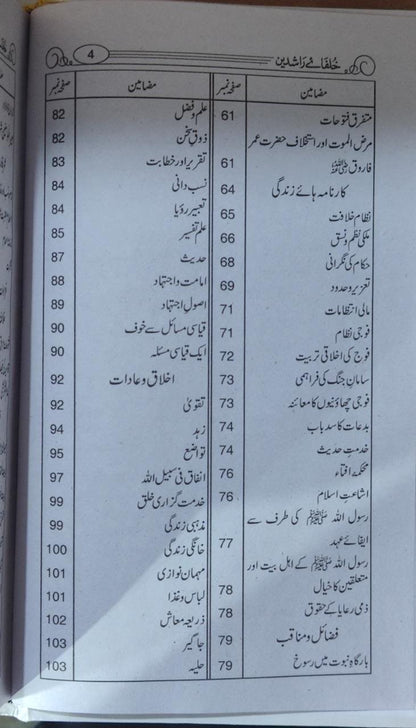 خلفائے راشدین
4
مضامین صفحہ نمبر
متفرق فتوحات 61
مرض الموت اور استخلاف حضرت عمر
فاروق رضی اللہ عنہ 61
کارنامہ ہائے زندگی 64
نظام خلافت 65
ملکی نظم و نسق 66
حکام کی نگرانی 68
تعزیر و حدود 69
مالی انتظامات 71
فوجی نظام 71
فوج کی اخلاقی تربیت 72
سامان جنگ کی فراہمی 73
فوجی چھاؤنیوں کا معائنہ 73
بدعات کا سدباب 74
خدمت حدیث 74
محکمۂ افتاء 76
اشاعت اسلام 76
رسول اللہ ﷺ کی طرف سے
ایفائے عہد 77
رسول اللہ ﷺ کے اہل بیت اور
متعلقین کا خیال 78
ذمی رعایا کے حقوق 78
فضائل و مناقب 79
بارگاہ نبوت میں رسوخ 79
مضامین صفحہ نمبر
علم و فضل 82
ذوق سخن 82
تقریر اور خطابت 83
نسب دانی 84
تعبیر رؤیا 84
علم تفسیر 85
حدیث 87
امامت و اجتہاد 88
اصول اجتہاد 89
قیاسی مسائل سے خوف 90
ایک قیاسی مسئلہ 90
اخلاق و عادات 92
تقویٰ 92
زہد 94
تواضع 95
انفاق فی سبیل اللہ 97
خدمت گزاری خلق 99
مذہبی زندگی 99
خانگی زندگی 100
مہمان نوازی 101
لباس و غذا 101
ذریعہ معاش 102
جاگیر 103
حلیہ 103